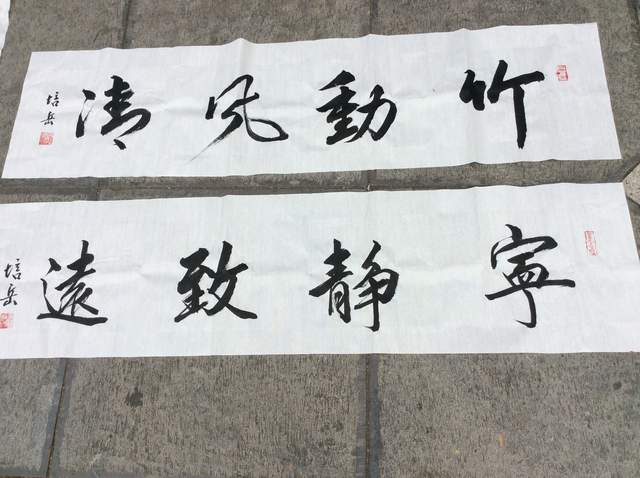 竹動风清
培岳
寧静致遠
培岳